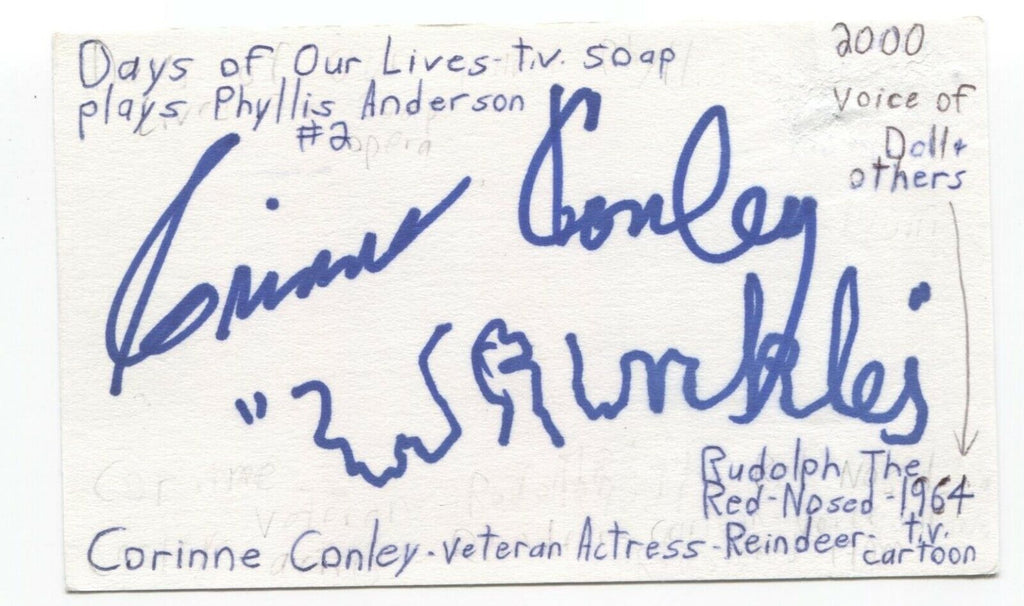 Days of Our Lives-t.v. soap
plays Phyllis Anderson
#2 opera
2000
voice of
Doll+
others
Corinne Conley
Rudolph The
Red-Nosed-1964
Corinne Conley-veteran Actress-Reindeer-t.v.
cartoon